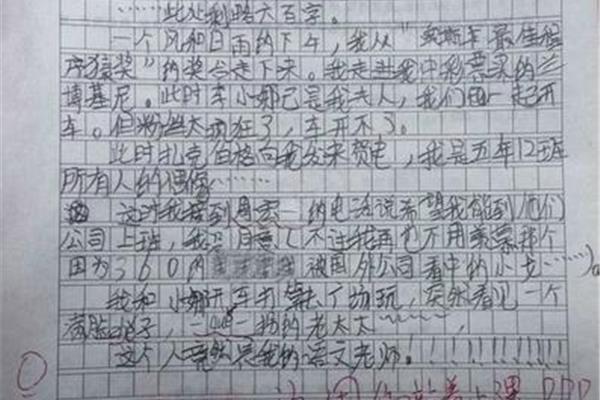 ……此处剩略六百字。
一个风和日雨的下午，我从“奥斯卡最佳程
序猿奖”的奖台走下来。我走进我中彩票买的兰
博基尼。此时车小娜已是我夫人，我们一起开
车。但粉丝太疯狂了，车开不了。
此时扎克伯格向我发来贺电，我是五年12班
所有人的偶像……
这时我接到周宏一的电话说希望我能到他们
公司上班，我没同意（不过我再也不用羡慕那个
因为360的 被国外公司看中的小龙……）。
我和小娜开车去 广场玩，突然看见一个
满脸 子， 拐的老太太……，
这个人竟然是我的语文老师！！！！！！！！！